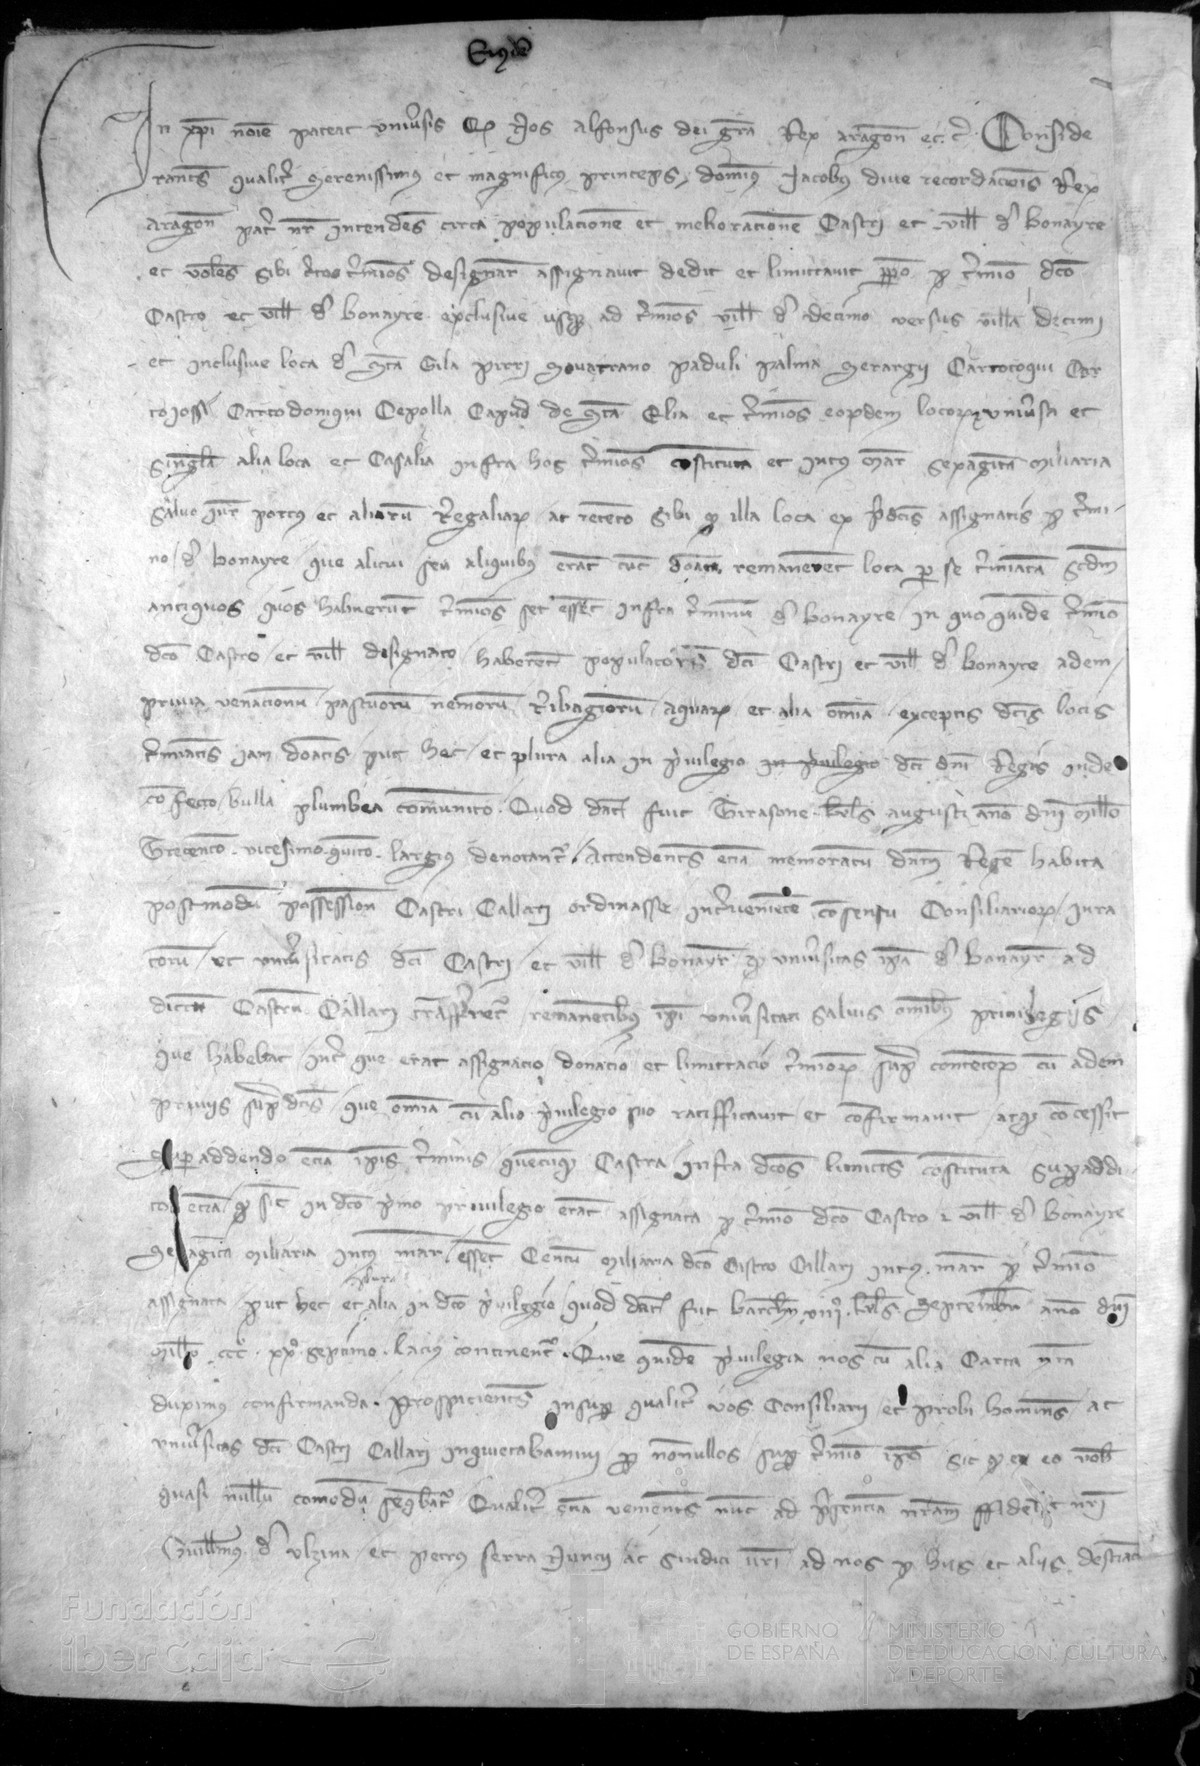 In xpi noie pateat univsis Q Nos Alfonsus dei gra Rex Aragon etc. Conside
rantes qualit serenissimus et magnificus princeps dominus Jacobus dive recordacionis Rex
Aragon pat nr intendens circa populacione et melioracione Castri et vill d bonayre
et volens sibi ctos tmios designar assignavit dedit et limitavit ppo p tmio dco
Castro et vill d bonayre exclusive usq ad tmios vill d decimo versus villa decimi
et inclusive loca d sca Gila pirri paduli palma
Capud de sca Elia et tmios eordem locor univsa et
singla alia loca et Casalia infra hos tmios costituta et intus mar sexaginta miliaria
salvo iur portus et aliaru Regaliar ac retento sibi q illa loca ex pdcis assignatis p tmi
no d bonayre que alicui seu aliquibus erat tuc donata remaneret loca p se tmiata scdm
antiquos quos habuerut tmios set esset infra tminum d bonayre in quo quide tmio
dco Castro et vill designato haberet populatores dci Castri et vill d bonayre adem
privia venacionu pascuoru nemoru Ribagioru aquar et alia omia exceptis dcis locis
tmiatis iam donatis put hec et plura alia in pvilegio in pvilegio dci dni Regis inde
cofecto bulla plumbea comunito. Quod dat fuit Tirasone kls augusti ano dni millo
Trecento vicesimo quito largius denotant. Attendentes ecia memoratu dnm Rege habita
postmodu possession Castri Callari ordinasse intveniete cosensu Consiliarior Jura
toru et univsitatis dci Castri et vill d Bonayr q univsitas ipa d Bonayr ad
dictu Castru Callari trasferret remanetibus ipi univsitati salvis omibus privilegiis
que habebat int que erat assignacio donacio et limitacio tmior sup contetor cu adem
priviis sup dcis que omia cu alio pvilegio suo ratifficavit et cofirmavit atq cocessit
Sup addendo ecia ipis tminis quecuq Castra infra dcos limites costituta supaddi
to ecia q sic in dco pmo privilegio erat assignata p tmio dco Castro et vill d Bonayre
sexaginta miliaria intus mar esset Centu miliaria dco Castro Callari intus mar p tmio
assignata put hec et plura alia in dco pvilegio quod dat fuit barchn viiii kls Septembr ano dni
millo ccc xx septimo lacius continent. Que quide pvilegia nos cu alia Carta nra
duximus confirmanda. Prospicientes insup qualit vos Consiliarii et probi homines ac
univsitas dci Castri Callari inquietabamini p nonullos sup tmio ipo sic q ex eo vob
quasi nullu comodu seqbat Qualit ecia venientes nuc ad psencia nram ffideles nri
Guillmus d ulzina et petrus serra Nuncii ac sindici vri ad nos p hiis et aliis destinati
Fundación
iberCaja
GOBIERNO
DE ESPAÑA
MINISTERIO
DE EDUCACIÓN, CULTURA
Y DEPORTE